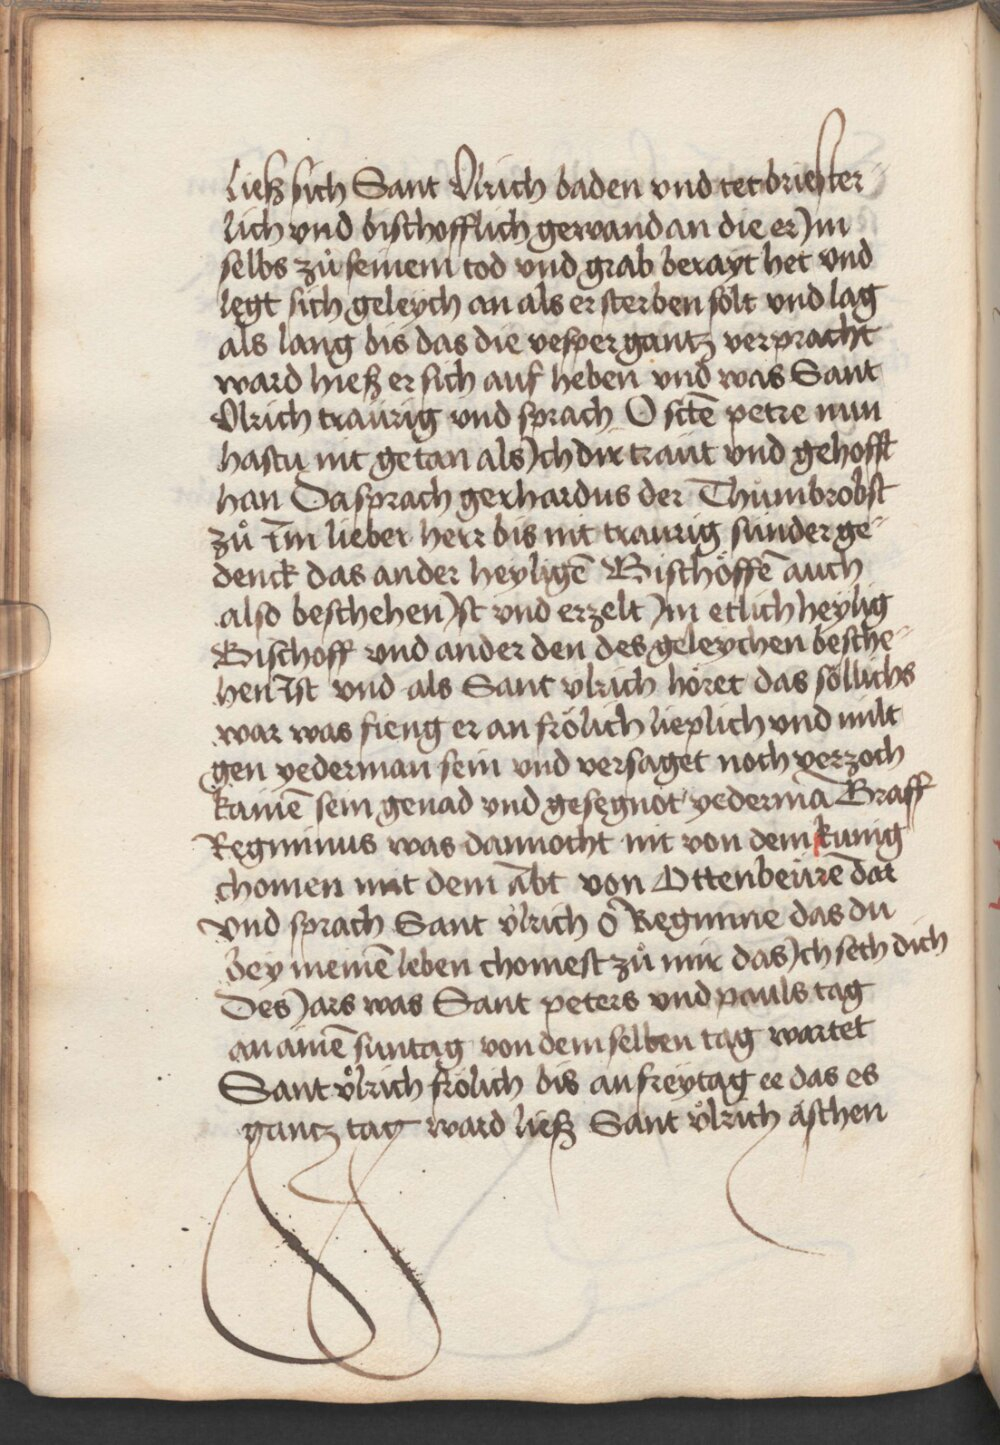 ließ sich Sant Vlrich baden vnd tet briester-
lich vnd bischofflich gewand an die er Jm
selbs zů seinem tod vnd grab berayt het vnd
legt sich geleych an als er sterben sölt vnd lag
als lang bis das die vesper gantz verpracht
ward hieß er sich auf heben vnd was Sant
Vlrich traürig vnd sprach O sctē petre nun
hastu nit getan als Jch dir traüt vnd gehofft
han Da sprach gerhardus der Thůmbrobst
zů im lieber herr bis nit traurig sunder ge-
denck das ander heyligē Bischöffē auch
also beschehen Jst vnd erzelt Jm etlich heylig
Bischoff vnd ander den des geleychen besche-
hen Ist vnd als Sant vlrich höret das söllichs
war was fieng er an frölich lieplich vnd milt
gen yederman sein vnd versaget noch verzoch
kainē sein genad vnd gesegnot yedermā Graff
Regminus was dannocht nit von dem kunig
chomen mit dem abt von Ottenbeürē dar
vnd sprach Sant vͦlrich o Regmine das du
bey meinē leben chomest zů mir das Jch sech dich
Des Jars was Sant peters vnd pauls tag
an ainē suntag von dem selben tag wartet
Sant vͦlrich frölich bis an freytag ee das es
gantz tag ward ließ Sant vͦlrich äschen